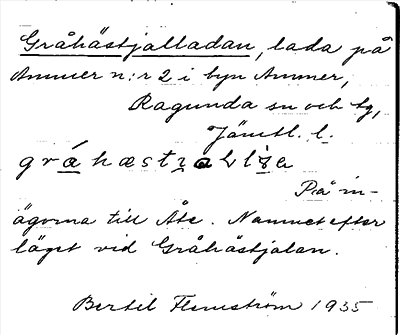 Gråhästjalladan, lada på
Ammer n:r 2 i byn Ammer,
Ragunda sn och tg,
Jämtl. l.
På in-
ägorna till Åse. Namnet efter
läget vid Gråhästjalan.
Bertil Flemström 1935